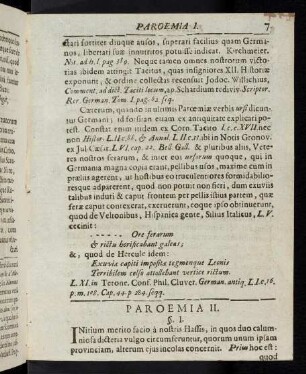 PAROEMIA I. 7
ctari fortiter diuque ausos, superari facilius quam Germa-
nos, libertati suæ innitentes potuisse indicat. Kirchmeier.
Not. ad h. l. pag. 189. Neque tamen omnes nostrorum victo-
rias ibidem attingit Tacitus, quas insigniores XII. Historiæ
exponunt, & ordine collectas recensuit Jodoc. Willichius,
Comment. ad dict. Taciti locum, ap. Schardium rediviv. Scriptor.
Rer. German. Tom. I. pag. 82. seq.
Cæterum, quando in ultimis Paremiæ verbis ursi dicun-
tur Germani; id forsitan etiam ex antiquitate explicari po-
test. Constat enim iudem ex Corn. Tacito l. c. c. XVII. nec
non Histor. L. II. c. 88. & Annal. L. II. c. 17. ibi in Notis Gronov.
ex Jul. Cæsar. L. VI. cap. 22. Bell. Gall. & pluribus aliis, Vete-
res nostros ferarum, & inter eas ursorum quoque, qui in
Germania magna copia erant, pellibus usos, maxime cum in
prælia agerent, ac histibus eo truculentiores formidabilio-
resque adparerent, quod non potuit non fieri, dum exuviis
talibus induti & caput frontem per pellis sius partem, quæ
feræ caput contexerat, exerueunt, eoque ipso obtinuerunt,
quod de Vettonibus, Hispanica gente, Silius Italicus, L. V.
cecinit:
- - - - - - Ore ferarum
& rictu horrificabant galeas;
&, quod de Hercule idem:
Exuviæ capiti impositæ tegimenque Leonis
Terribilem celso attollebant vertice rictum.
L. XI. in Terone. Conf. Phil. Cluver. German. antiq. L. I. c. 16.
p. m. 108. Cap. 44. p. 284. seqq.
PAROEMIA II.
§. I.
INitium merito facio à nostris Hassis, in quos duo calum-
niosa dicteria vulgo circumferuntur, quorum unum ipsam
provinciam, alterum ejus incolas concernit. Prius hoc est:
quod